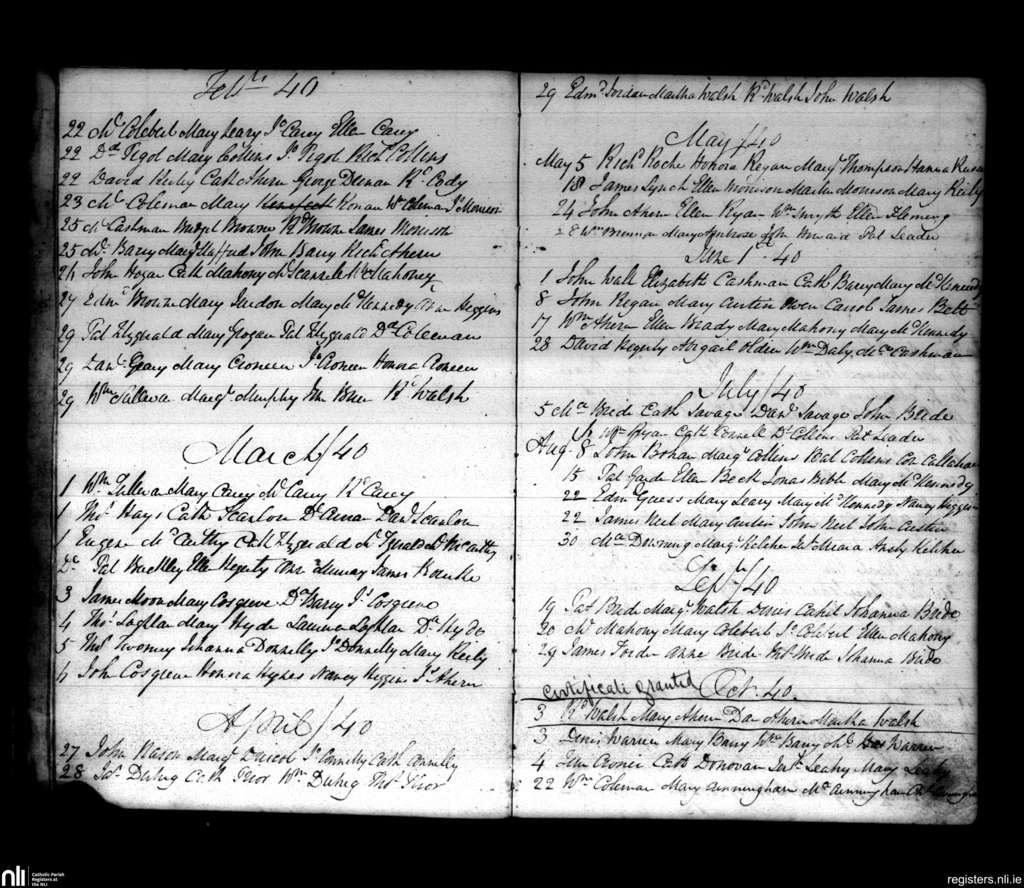 Feb 40
22 Ml Colebert Mary Leary Jo Carey Ellen Carey
22 Dd Pigot Mary Collins Js Pigot Richd Collins
22 David Kerby Cath Ahern George Deenan Rd Cody
23 Ml Coleman Mary Ronan Wm Coleman Js Morrison
25 Ml Cashman Margt Browne Rd Brown James Morrison
25 Ml Barry Mary Stafford John Barry Richd Ahern
26 John Hogan Cath Mahony Ml Mahoney
27 Edmd Browne Mary Jurdon Mary McKennedy Ann Higgins
29 Pat Fitzgerald Mary Grogan Pat Fitzgerald Dd Coleman
29 Danl Geary Mary Croneen Jo Croneen Honora Croneen
29 Wm Sullivan Margt Murphy Jno Rd Walsh
March/40
1 Wm Mary Carey Ml Carey Carey
1 Thos Hays Cath Scanlon Danl Scanlon
1 Eugene McCarthy Cath Fitzgerald McCarthy
Do Pat Buckley Ellen Hegerty Ann Murray James Rourke
3 James Moon Mary Cosgrove Barry Js Cosgrove
4 Thos Loghlan Mary Hyde Loghlan Dd Hyde
5 Thos Twomey Johanna Donnelly Js Donnelly Mary Kerby
6 John Cosgrove Honora Hynes Nancy Higgins Js Ahern
April/40
27 John Mason Margt Driscol Js Connelly Cath Connelly
28 Jas Duhig Cath Prior Wm Duhig Thos Prior
29 Edmd Jordan Martha Walsh Rd Walsh John Walsh
May/40
May 5 Richd Roche Honora Regan Mary Thompson Hanna
18 James Lynch Ellen Morrison Martin Morrison Mary Reily
24 John Ahern Ellen Ryan Wm Smyth Ellen Fleming
28 Wm Brennan Mary Ambrose John Howard Pat Leader
June 1st 40
1 John Wall Elizabeth Cashman Cath Barry Mary McKennedy
8 John Regan Mary Austin Owen Carrol James Bett
17 Wm Ahern Ellen Brady Mary Mahony Mary McKennedy
28 David Hegerty Abigail Olden Wm Daly Cashman
July/40
5 Bride Cath Savage Danl Savage John Bride
Wm Ryan Cath Connell Collins Pat Leader
Aug. 8 John Bohan Margt Collins Bat Collins Con Callahan
15 Pat Garde Ellen Beck Jonas Bibb Mary McKennedy
22 Edmd Guess Mary Leary Mary McKennedy Nancy Higgins
22 James Neil Mary Austin John Neil John Austin
30 Downing Margt Keliher Meara Andy Keliher
Sepr/40
19 Pat Bride Margt Walsh Denis Cahil Johanna Bride
20 Ml Mahony Mary Colebert Js Colebert Ellen Mahony
29 James Forde Anne Bride Bride Johanna Bride
Certificate granted Oct. 40
3 Rd Walsh Mary Ahern Dan Ahern Martha Walsh
3 Denis Warren Mary Barry Wm Barry Warren
4 Cath Donovan Leahy Mary Leahy
22 Wm Coleman Mary Cunningham Cunningham
nli
Catholic Parish
Registers at
the NLI
registers.nli.ie